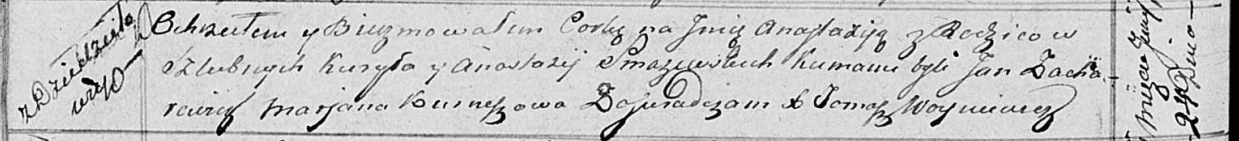 z Dziedziło
wicz
Ochrzciłem y Bierzmowałem Corkę na Jmię Anastazyą z Rodzicow
Szlubnych Kuryła y Anastazij Smażewskich Kumami byli Jan Zacha-
rewicz Marjana Kurneszowa Zaświadczam X Tomasz Woyniewicz
24 Dnia